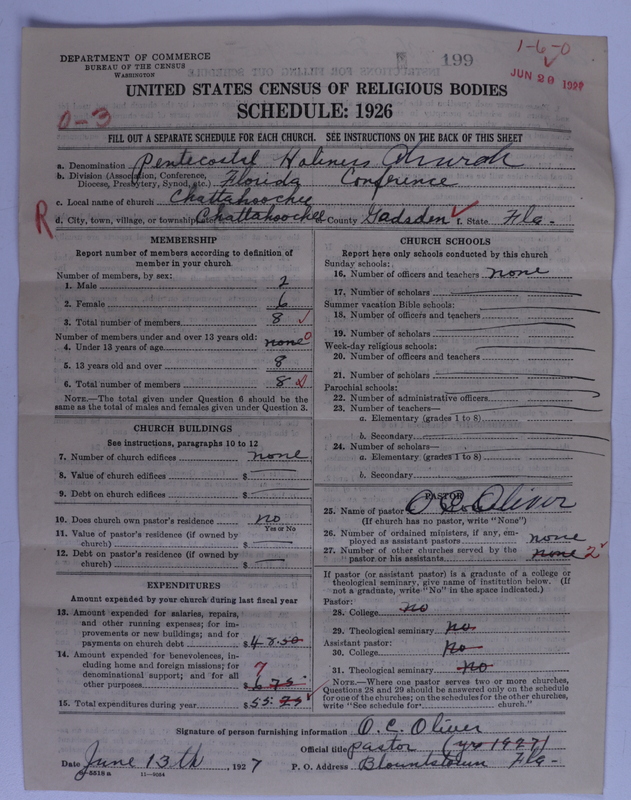 DEPARTMENT OF COMMERCE
BUREAU OF THE CENSUS
WASHINGTON
199
1-6-0
JUN 28 1927
UNITED STATES CENSUS OF RELIGIOUS BODIES
SCHEDULE: 1926
0-3
FILL OUT A SEPARATE SCHEDULE FOR EACH CHURCH. SEE INSTRUCTIONS ON THE BACK OF THIS SHEET
a. Denomination Pentecostal Holiness Church
b. Division (Association, Conference, Diocese, Presbytery, Synod, etc.) Florida Conference
c. Local name of church Chattahoochee
R
d. City, town, village, or township Chattahoochee e. County Gadsden f. State Fla-
MEMBERSHIP
Report number of members according to definition of
member in your church
Number of members, by sex:
1. Male 2
2. Female 6
3. Total number of members 8
Number of members under and over 13 years old:
4. Under 13 years of age none 0
5. 13 years old and over 8
6. Total number of members 8
NOTE.—The total given under Question 6 should be
same as the total of males and females given under Question 3.
CHURCH BUILDINGS
See instructions, paragraphs 10 to 12
7. Number of church edifices none
8. Value of church edifices $
9. Debt on church edifices $
10. Does church own pastor's residence no
Yes or No
11. Value of pastor's residence (if owned by
church) $
12. Debt on pastor's residence (if owned by
church) $
EXPENDITURES
Amount expended by your church during last fiscal year
13. Amount expended for salaries, repairs,
and other running expenses; for im-
provements or new buildings; and for
payments on church debt $ 48.50
14. Amount expended for benevolences, in-
cluding home and foreign missions; for
denominational support; and for all
other purposes $ 6.75 7
15. Total expenditures during year $ 55.25
CHURCH SCHOOLS
Report here only schools conducted by this church
Sunday schools:
16. Number of officers and teachers none
17. Number of scholars
Summer vacation Bible schools:
18. Number of officers and teachers
19. Number of scholars
Week-day religious schools:
20. Number of officers and teachers
21. Number of scholars
Parochial schools:
22. Number of administrative officers
23. Number of teachers—
a. Elementary (grades 1 to 8)
b. Secondary
24. Number of scholars—
a. Elementary (grades 1 to 8)
b. Secondary
PASTOR
25. Name of pastor O C Oliver
(If church has no pastor, write "None")
26. Number of ordained ministers, if any, em-
ployed as assistant pastors none
27. Number of other churches served by the
pastor or his assistants none 2
If pastor (or assistant pastor) is a graduate of a college or
theological seminary, give name of institution below. (If
not a graduate, write "No" in the space indicated.)
Pastor:
28. College no
29. Theological seminary no
Assistant pastor:
30. College no
31. Theological seminary no
NOTE.—Where one pastor serves two or more churches,
Questions 28 and 29 should be answered only on the schedule
for one of the churches; on the schedules for the other churches,
write "See schedule for church."
Signature of person furnishing information O. C. Oliver
Official title pastor (yr 1927)
Date June 13th, 1927 P. O. Address Blountstown Fla-
8-5518 a 11-9084